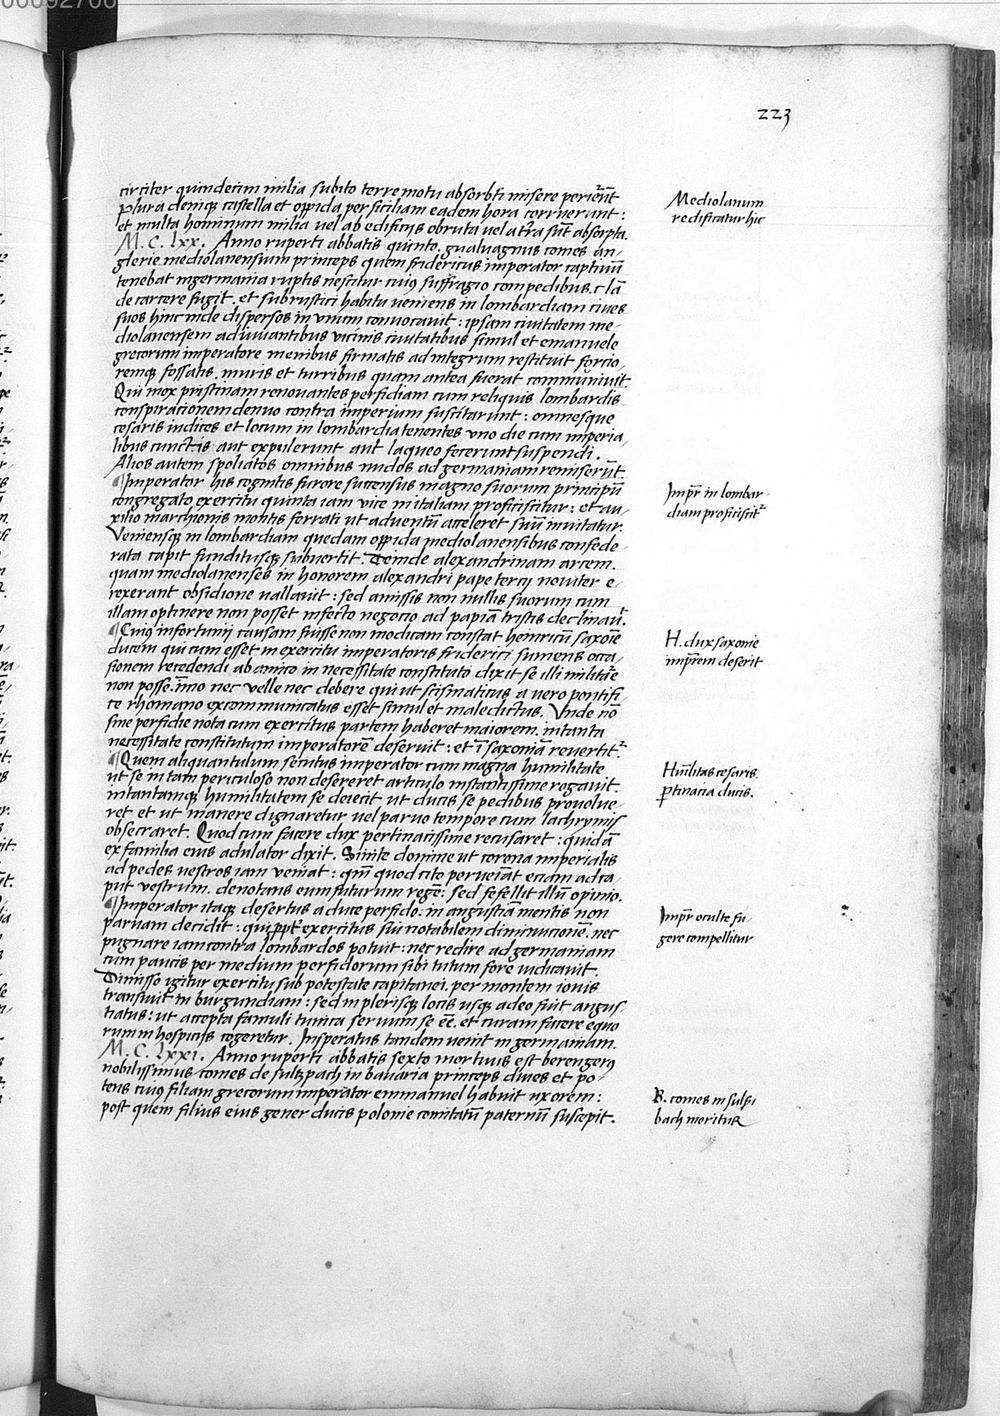 00092706
223
circiter quindecim milia subito terre motu absorbti misere perierūt
plura demq; castella et oppida per siciliam eadem hora corruerunt :
et multa hominum milia uel ab edificijs obruta uel a tr̄a sūt absorpta.
M. C. lxx. Anno ruperti abbatis quinto. gualuagnus comes an/
glerie mediolanensium princeps quem fridericus imperator captiuū
tenebat in germania ruptis nescitur cuiꝰ suffragio compedibus. clā
de carcere fugit. et sub rustici habitu ueniens in lombardiam ciues
suos hinc inde dispersos in vnum conuocauit : ipsam ciuitatem me/
diolanensem adiuuantibus vicinis ciuitatibus simul et emanuele
grecorum imperatore menibus firmatis ad integrum restituit forcio,
remq; fossatis. muris et turribus quam antea fuerat communiuit.
Qui mox pristinam renouantes perfidiam cum reliquis lombardis
conspirationem denuo contra imperium suscitarunt : omnesque
cesaris iudices et locum in lombardia tenentes vno die cum imperia,
libus cunctis aut expulerunt aut laqueo fecerunt suspendi.
Alios autem spoliatos omnibus nudos ad germaniam remiserūt.
¶Imperator his cognitis furore succensus magno suorum principū
congregato exercitu quinta iam vice in italiam proficiscitur : et au/
xilio marchionis montis ferrati ut aduentū acceleret suū inuitatur.
Veniensq; in lombardiam quedam oppida mediolanensibus confede/
rata capit funditusq; subuertit. Deinde alexandrinam arcem.
quam mediolanenses in honorem alexandri pape tercij nouiter e/
rexerant obsidione uallauit : sed amissis non nullis suorum cum
illam optinere non posset infecto negocio ad papiā tristis declinauit.
¶Cuius infortunij causam fuisse non modicam constat heinricū saxoīe
ducem qui cum esset in exercitu imperatoris friderici sumens occa/
sionem recedendi ab amico in necessitate constituto dixit se illi militare
non posse. īmo nec velle nec debere qui ut scismaticus a vero pontifi
ce rhomano excommunicatus esset simul et maledictus. Vnde nō
sine perfidie nota cum exercitus partem haberet maiorem. in tanta
necessitate constitutum imperatorē deseruit : et ī saxoniā reuertitᷣ
¶Quem aliquantulum secutus imperator cum magna humilitate
ut se in tam periculoso non desereret articulo instantissime rogauit.
in tantamq; humilitatem se deiecit ut ducis se pedibus prouolue/
ret et ut manere dignaretur vel paruo tempore cum lachrymis
obsecraret. Quod cum facere dux pertinacissime recusaret : quidā
ex familia eius adulator dixit. Sinite domine ut corona imperialis
ad pedes vestros iam veniat : qm̄ quod cito perueiāt eciam ad ca/
put vestrum. denotans eum futurum regē: sed fefellit illū opinio.
¶Imperator itaq; desertus a duce perfido. in angustiam mentis non
paruam decidit : qui ꝓpt̄ exercitus sui notabilem diminucionē. nec
pugnare iam contra lombardos potuit : nec redire ad germaniam
cum paucis per medium perfidorum sibi tutum fore iudicauit.
Dimisso igitur exercitu sub potestate capitanei. per montem iouis
transiuit in burgundiam : sed in plerisq; locis usq; adeo fuit angus/
tiatus : ut accepta famuli tunica seruum se eē. et curam facere equo
rum in hospicijs cogeretur. Insperatus tandem uenit in germaniam.
M. C. lxxi. Anno ruperti abbatis sexto mortuus est berengerꝰ
nobilissimus comes de sultzpach in bauaria princeps diues et po/
tens cuiꝰ filiam grecorum imperator emmanuel habuit uxorem :
post quem filius eius gener ducis polonie comitatū paternū suscepit.
Mediolanum
redificatur hic
Impr̄ in lombar-
diam proficiscitᷣ
H. dux saxonie
imꝑrem deserit
Hūilitas cesaris.
ꝑtinacia ducis.
Impr̄ oculte fu-
gere compellitur
B. comes in sulz-
bach moritur